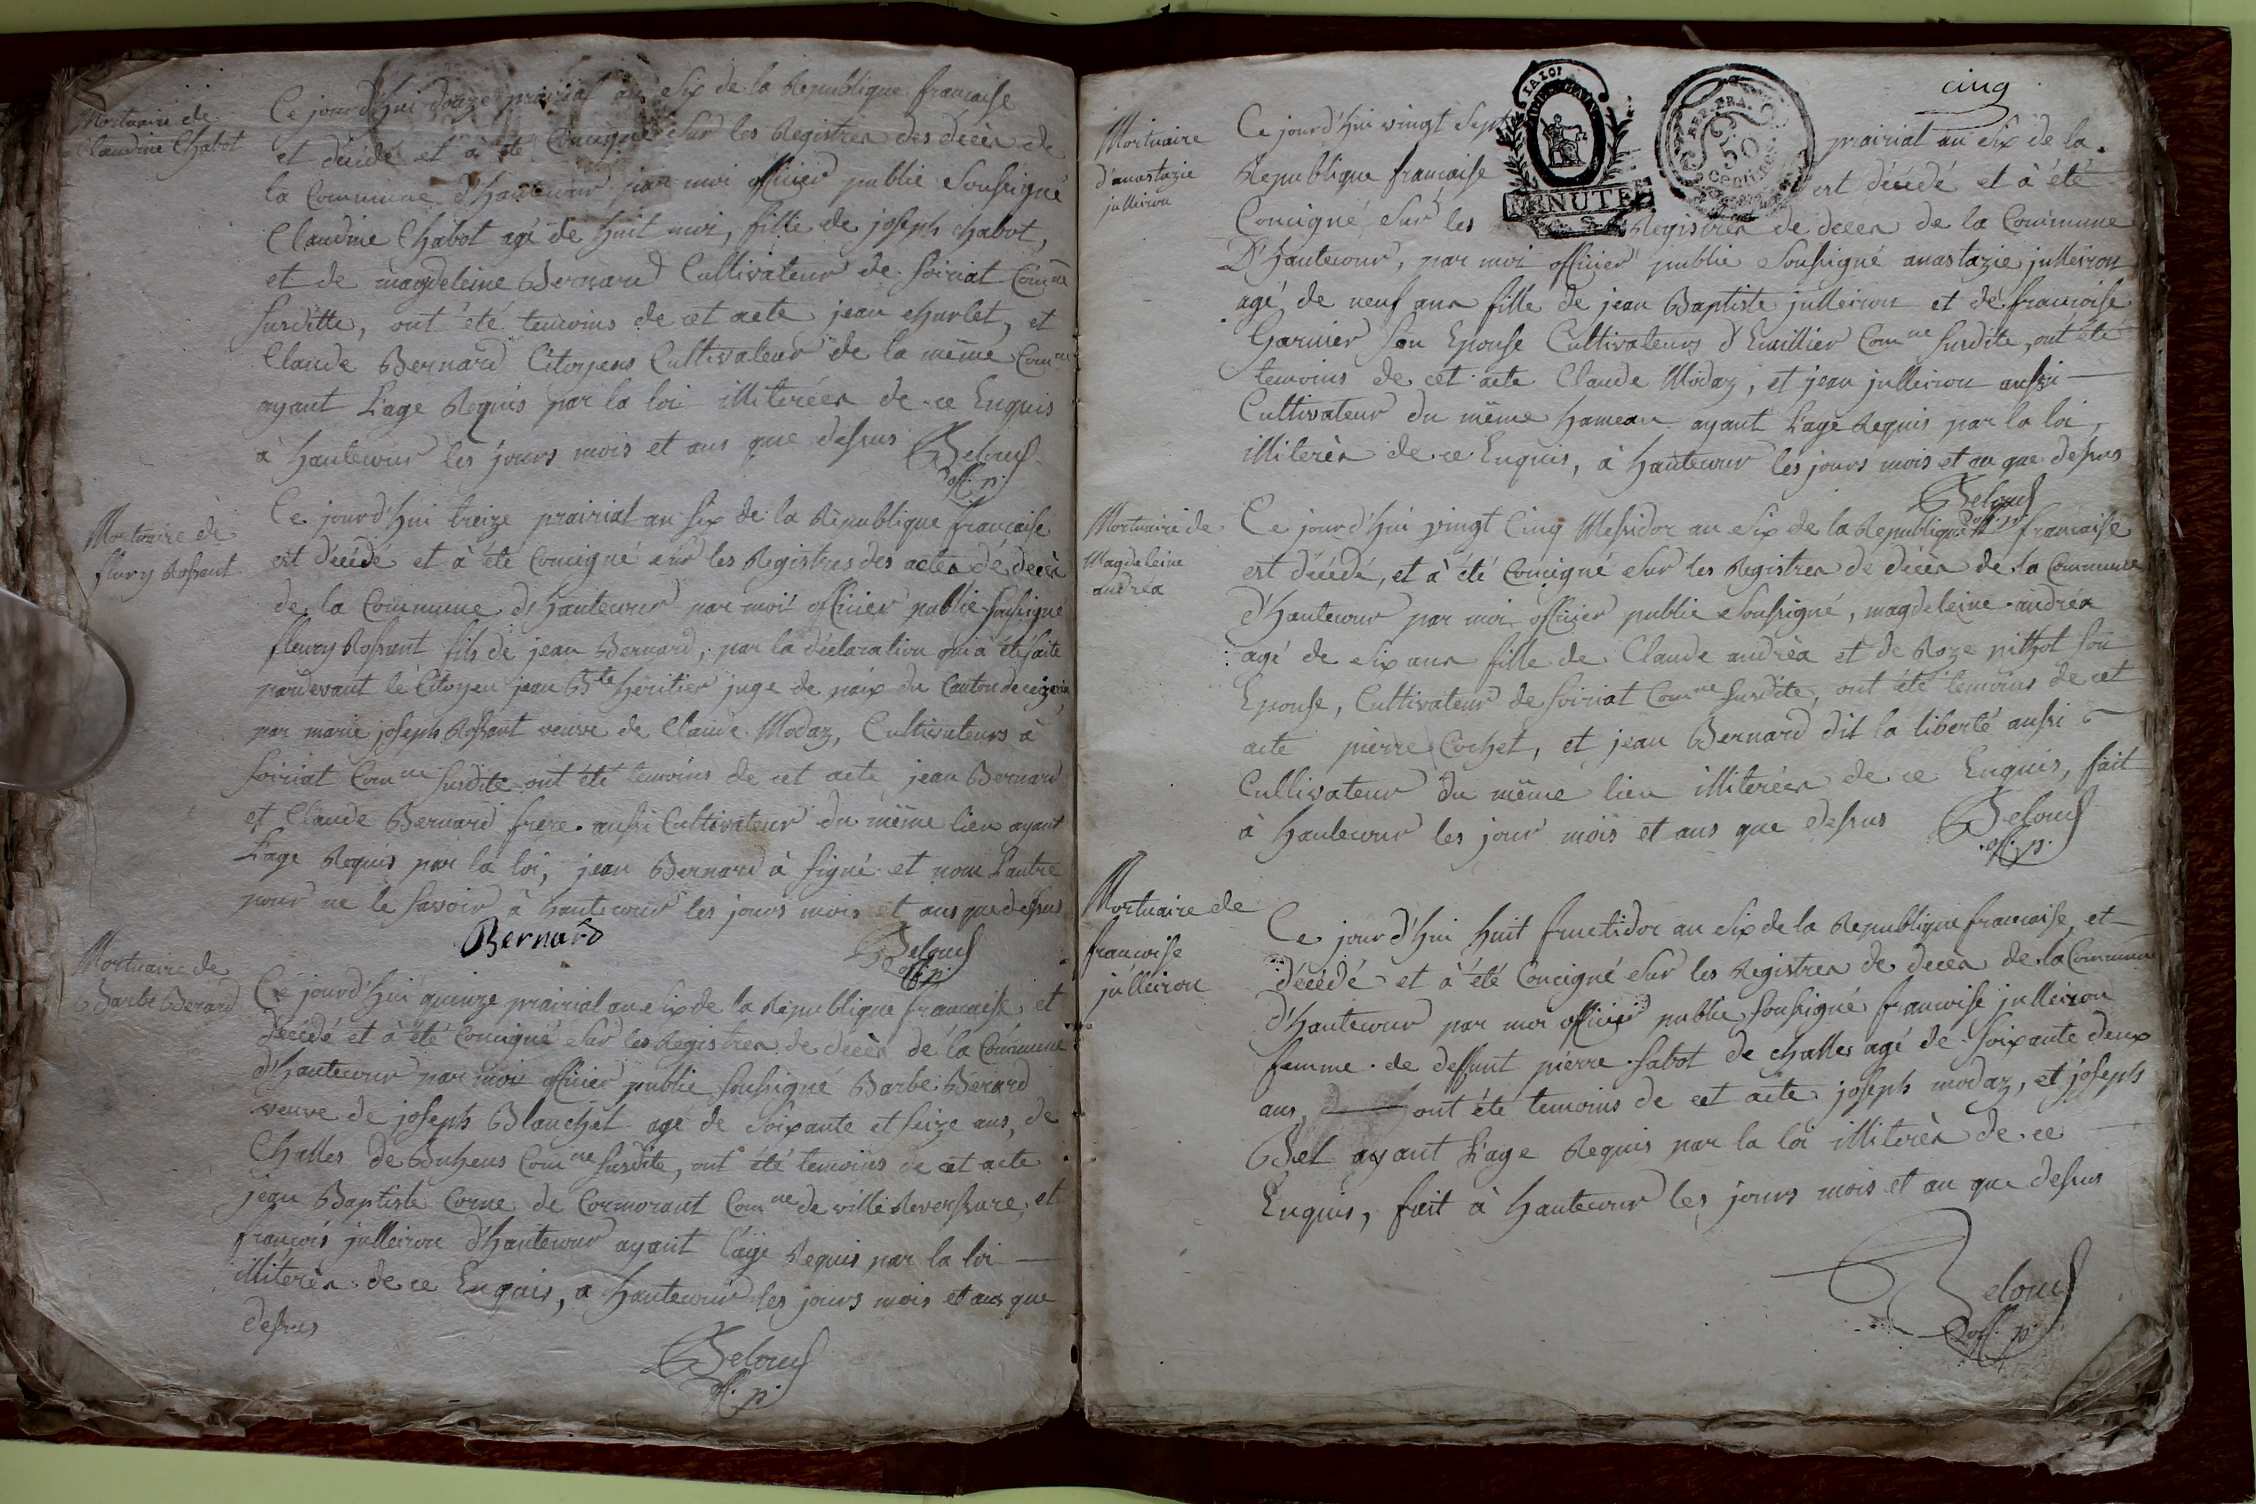 Mortuaire de
Claudine Chabot
Ce jourd'hui douze prairial an six de la Republique francaise
et décédé et à été Concigné sur les Registres des décès de
la Commune d'hautecour par moi officier public soussigné
Claudine Chabot agé de huit moi, fille de joseph chabot,
et de magdeleine Bernard Cultivateur de soiriat Comne
susditte, ont été temoins de cet acte jean churlet, et
Claude Bernard Citoyens Cultivateur de la même Comne
ayant L'age Requis par la loi illiterées de ce Enquis
à hautecour les jours mois et ans que dessus
off. p.
Mortuaire de
fleury Rossant
Ce jourd'hui treize prairial an six de la Republique francaise
est décédé et à été Concigné sur les Registres des actes de décès
de la Commune d'hautecour par moi officier public soussigné
fleury Rossant fils de jean Bernard, par la déclaration qui à été faite
pardevant le Citoyen jean Bte heritier juge de paix du Canton de ceizeria
par marie joseph Rossant veuve de Claude Modaz, Cultivateurs à
soiriat Comne susdite ont été temoins de cet acte jean Bernard
et Claude Bernard frere aussi Cultivateur du même lieu ayant
L'age Requis par la loi, jean Bernard à signé et nom L'autre
pour ne le savoir à hautecour les jours mois et ans que dessus
Bernard
off. p.
Mortuaire de
Barbe Berard
Ce jourd'hui quinze prairial an six de la Republique francaise et
décédé et à été Concigné sur les Registres de décès de la Commune
d'hautecour par moi officier public soussigné Barbe Bérard
veuve de joseph Blanchet agé de soixante et seize ans, de
Challes de Buhens Comne susdite, ont été temoins de cet acte
jean Baptiste Corne de Cormorant Comne de ville Reversure, et
francois julleiron d'hautecour ayant l'age Requis par la loi
illiterés de ce Enquis, a hautecour les jours mois et ans que
dessus
off. p.
cinq
MINUTES
REP. FRA.
50
Centimes
Mortuaire
d'anastazie
julleiron
Ce jourd'hui vingt sept prairial an six de la
Republique francaise est décédé et à été
Concigné sur les Registres de décès de la Commune
D'hautecour, par moi officier public soussigné anastazie julleiron
agé de neuf ans fille de jean Baptiste julleiron et de francoise
Garnier son Epouse Cultivateurs d'Euillier Comne susdite, ont été
temoins de cet acte Claude Modaz, et jean julleiron aussi
Cultivateur du même hameau ayant L'age Requis par la loi,
illiterés de ce Enquis, à hautecour les jours mois et an que dessus
Mortuaire de
Magdeleine
andréa
Ce jourd'hui vingt Cinq Messidor an six de la Republique francaise
est décédé, et à été Concigné sur les Registres de décès de la Commune
d'hautecour par moi officier public soussigné, magdeleine andréa
agé de six ans fille de Claude andréa et de Roze pithot son
Epouse, Cultivateur de soiriat Comne susdite, ont été temoins de cet
acte pierre Cochet, et jean Bernard dit la liberté aussi
Cultivateur du même lieu illiterées de ce Enquis, fait
à hautecour les jour mois et ans que dessus
off. p.
Mortuaire de
francoise
julleiron
Ce jourd'hui huit fructidor an six de la Republique francaise, et
décédé et à été Concigné sur les Registres de décès de la Commune
d'hautecour par moi officier public soussigné francoise julleiron
femme de deffunt pierre sabot de challes agé de soixante deux
ans, ont été temoins de cet acte joseph modaz, et joseph
Bel ayant L'age Requis par la loi illiterés de ce
Enquis, fait à hautecour les jours mois et an que dessus
off. p.